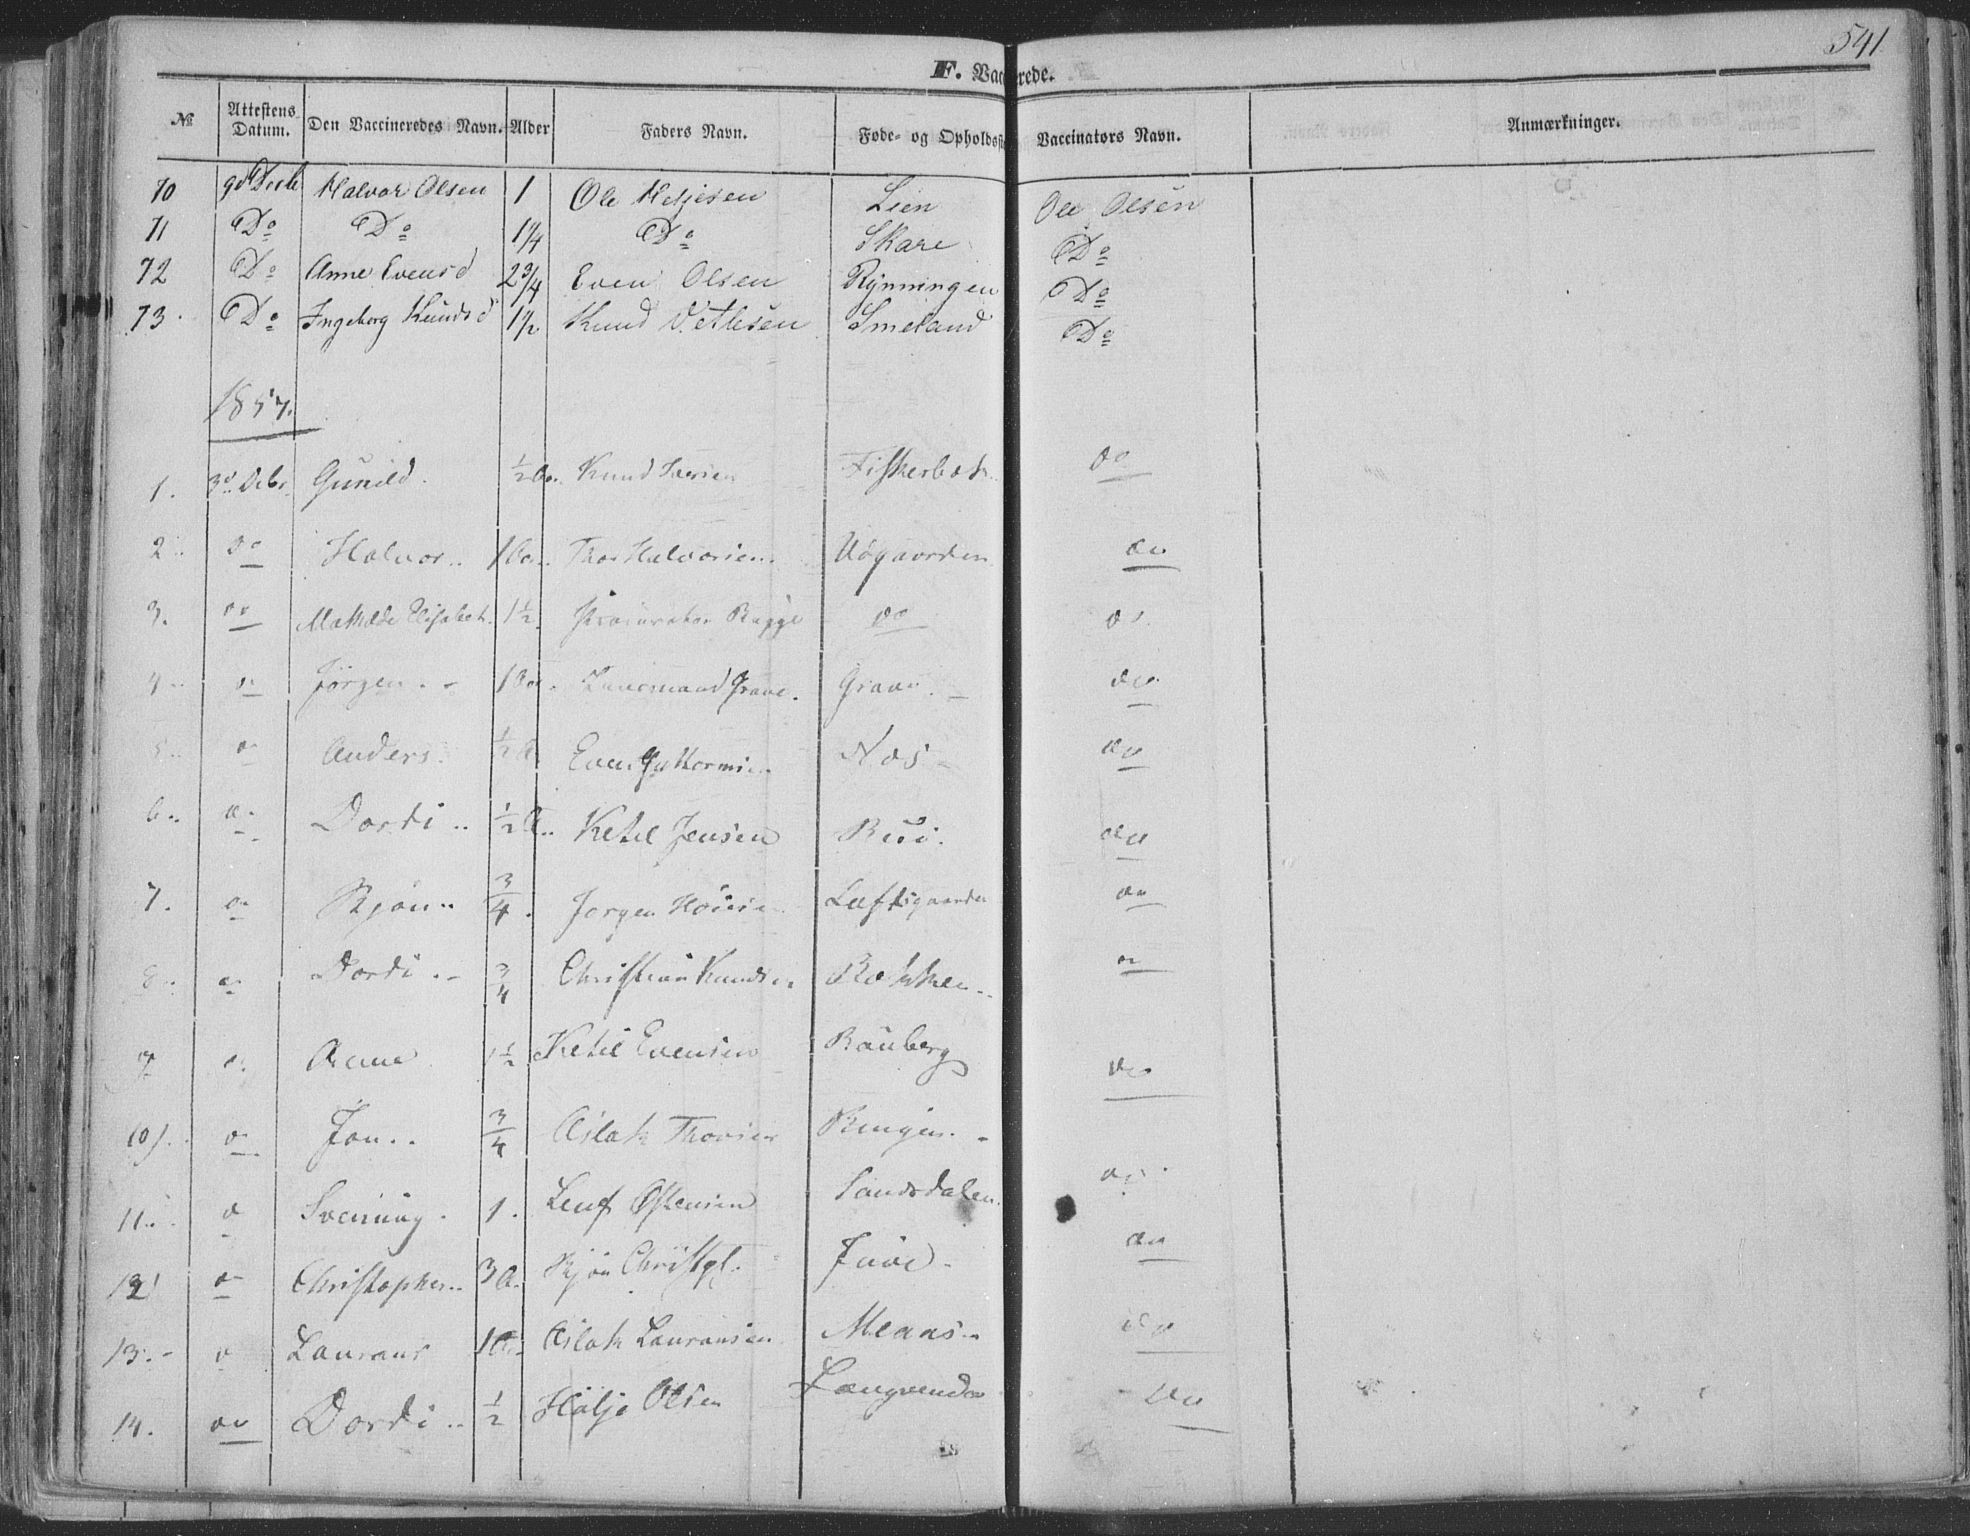 541.
F. Vaccinerede.
№ | Attestens Datum. | Den Vaccineredes Navn. | Alder | Faders Navn. | Føde- og Opholdsst | Vaccinators Navn. | Anmærkninger.
70 | Halvor Olsen | 1 | Ole Heljesen | Lien | Ole Olsen
71 | Do | Do | 1 1/4 | Do | Skare | Do
72 | Do | Anne Evensd | 2 3/4 | Even Olsen | Rynningen | Do
73. | Do | Ingeborg Knudsd | 1 1/2 | Knud Vetlesen | Smeland | Do
1857.
1. | 3d Debr | Gunild. | 1/2 | Knud | Fiskerbæk | do
2. | do | Halvor.. | 1 | Thor Halvorsen. | Uøgaarden | do
3. | do | Mathilde Elisabet. | 1 1/2 | Procurator Bugge | do | do
4 | do | Jørgen. - | 1 | Lensmand Grave. | Grave. - | do
5. | do | Anders. | 1/2 A. | Even Guttormsen | Næs - | do
6.. | do | Dordi.. | 1/2 A.. | Ketil Jensen | Bùù. | do
7. | do | Bjøn.. | 3/4. | Jørgen | Loftsgaarden | do
8. | do | Dordi. - | 3/4 | Christian Knudsen | Bakken.. | do
9 | do | Anne | 1 1/2 | Ketil Evensen | Bauberg | do
10). | do | Jon.. | 3/4 | Aslak Thovsen | Ringen. - | do
11.. | do | Svenung. | 1. | Leuf Østensen | Sandsdalen. | do
12) | do | Christopher.. | 3 A. | Bjøn Christph. | do
13. - | do | Laurans | 1 A. | Aslak Lauransen | Meaas.. | do
14. | do | Dordi.. | 1/2 | Hælje Olsen | Langvend | do